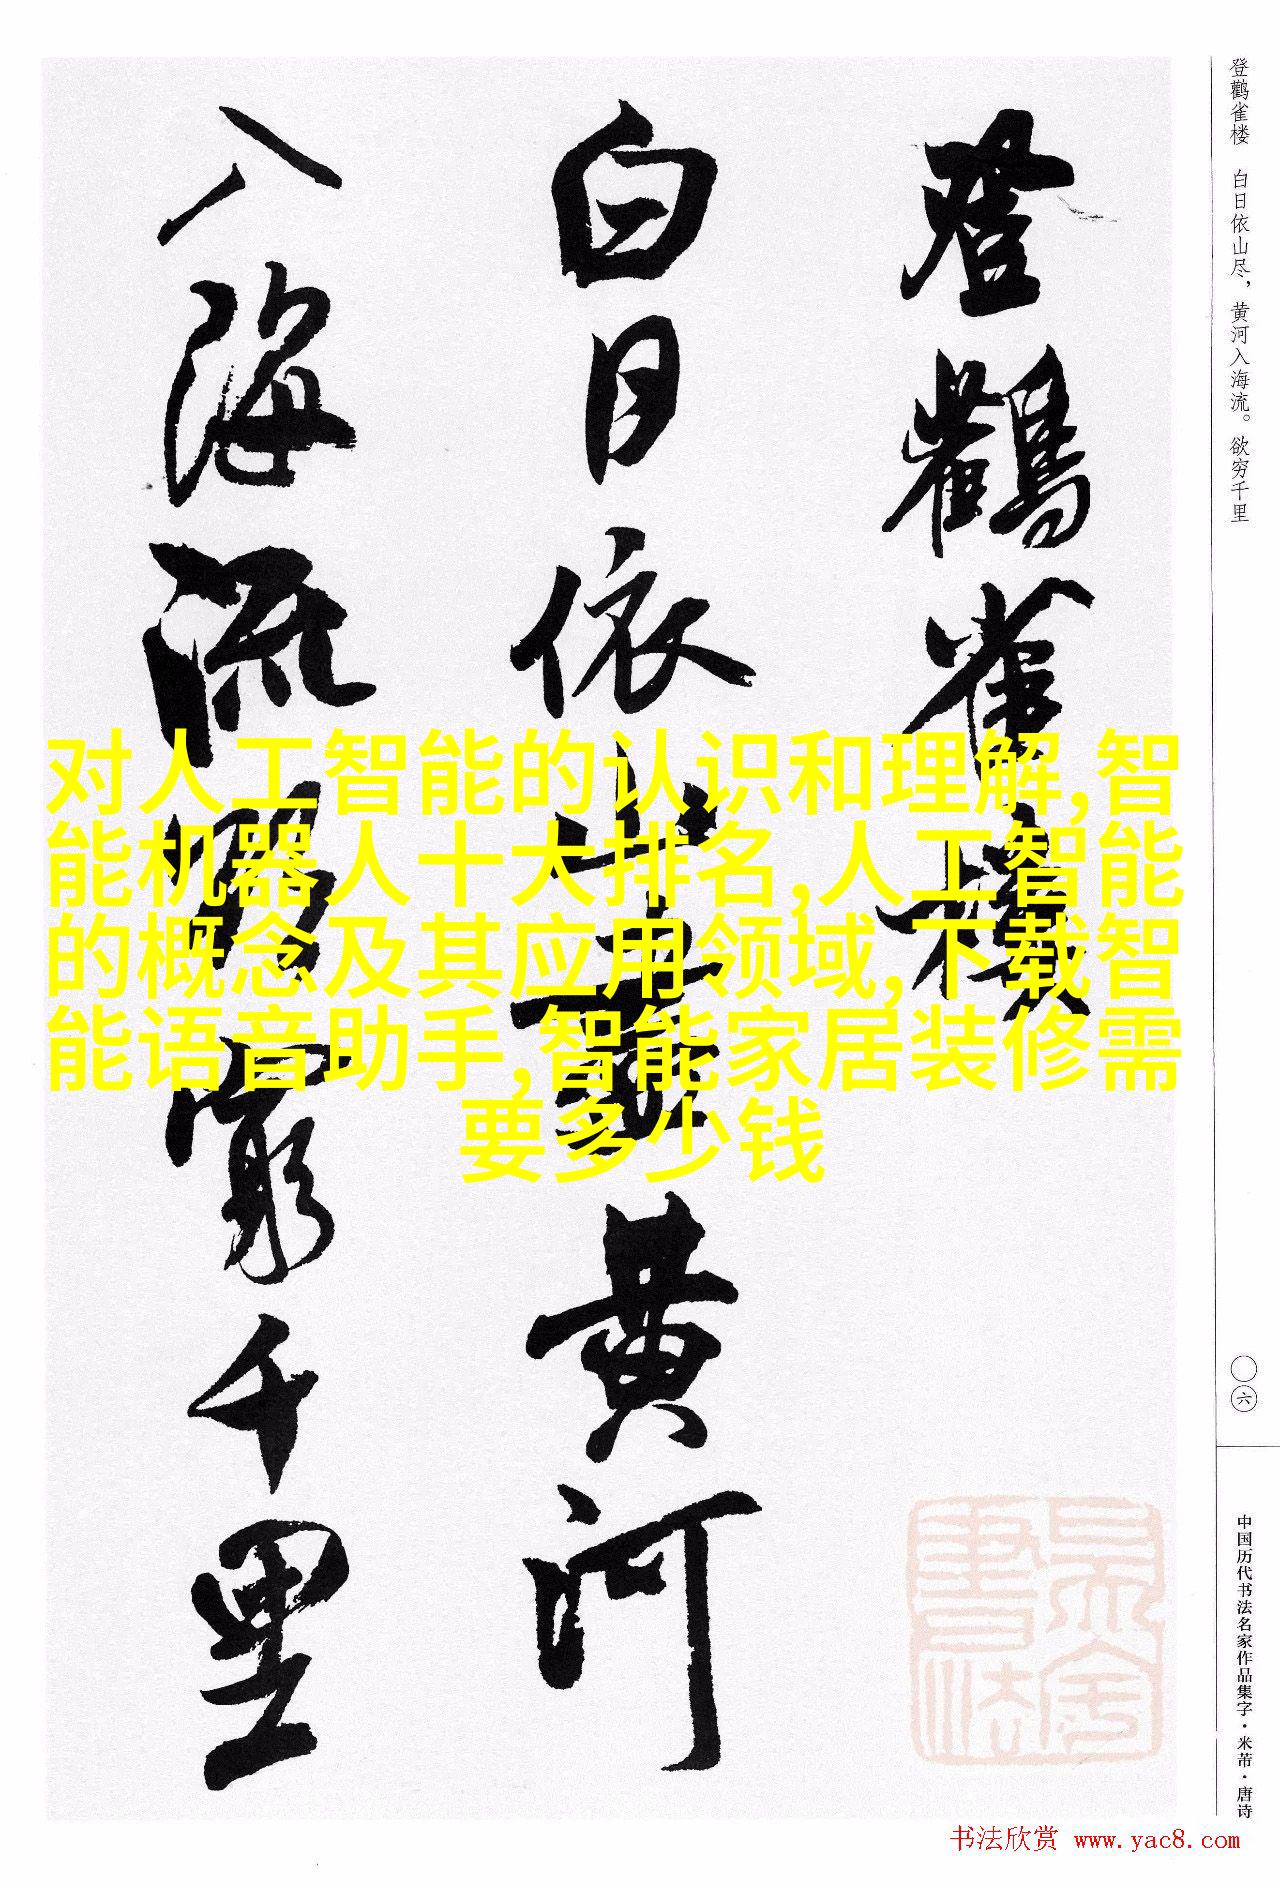 登鹳雀楼 白日依山尽，黄河入海流。欲穷千里
登鸛雀樓
白日依山盡黄河
入海流欲窮千里
对人工智能的认识和理解,智
能机器人十大排名,人工智能
的概念及其应用领域,下载智
能语音助手,智能家居装修需
要多少钱
〇六
中国历代书法名家作品集字·米芾·唐诗
书法欣赏 www.yac8.com